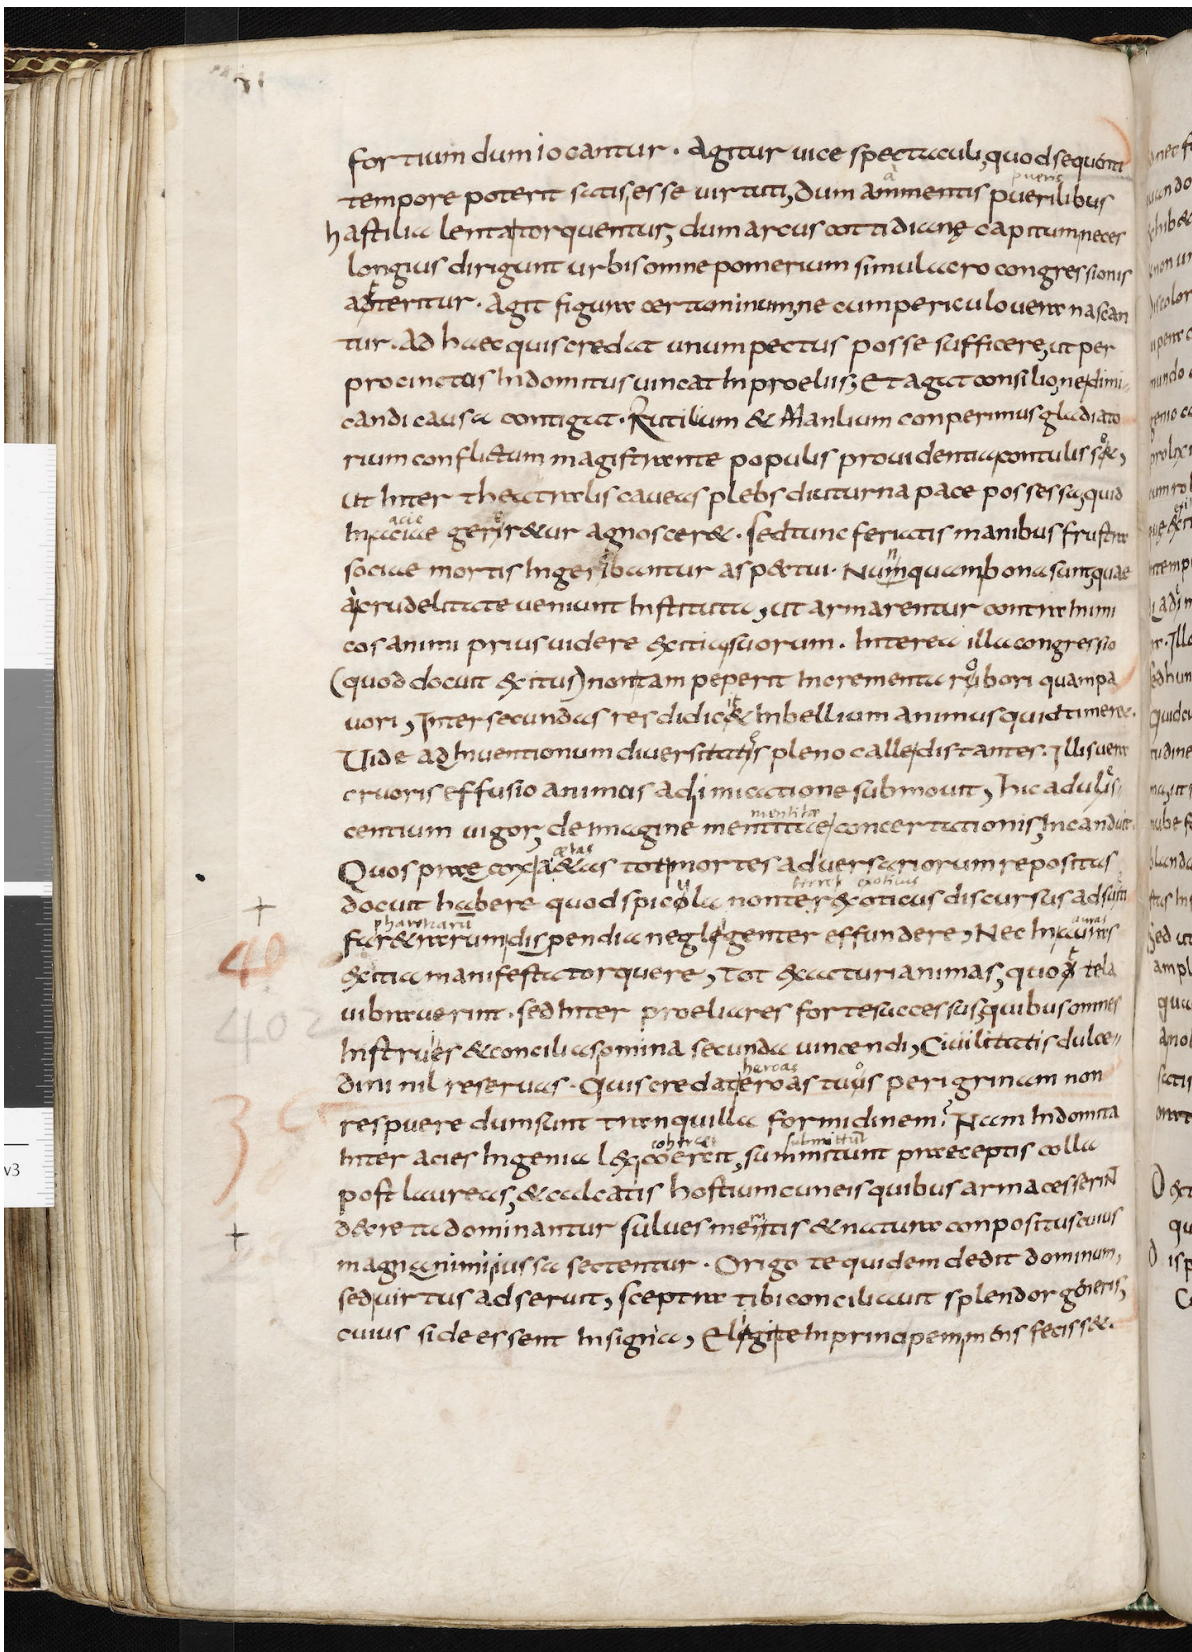 fortium dum iocantur. Agitur uice spectaculi, quod sequenti
tempore poterit satis esse uirtuti, Dum ammentis puerilibus
hastilia lenta torquentur, dum arcus cottidianę capitum neces
longius dirigunt urbis omne pomerium simulacro congressionis
adteritur. Agit figura certaminum, ne cum periculo uera nascan
tur. Ad haec quis credat unum pectus posse sufficere, ut per
procinctus Indomitus uincat In proeliis, Et agat consilio, ne dimi-
candi causa contigat. Rutilium & Manlium conperimus gladiato
rium conflictum magistrante populis prouidentia contulisse,
ut Inter theatralis caueas plebs diuturna pace possessa, quid
In aciae gerer&ur agnoscer&. sed tunc feriatis manibus frustra
sociae mortis Ingeribantur asp&tui. Numquam bona sunt quae
a crudelitate ueniunt Instituta, ut armarentur contra Inimi
cos animi prius uidere &citia suorum. Interea illa congressio
(quod docuit &itus) non tam peperit Incrementa robori quam pa
uori, Inter secundas res didic& Inbellium animus quid timer&.
Uide ad Inuentionum diuersitates pleno calle distantes. Illis uera
cruoris effusio animas a dimicatione submouit, hic adulis-
centium uigor, de Imagine mentitae concertationis, Incanduit
mentitae
Quos praecoxa &as tot mortes aduersariorum repositas
aetas
docuit habere quod spicola non ter& oticus discursus adsueti
pharetrarū
far&rarum dispendia neglegenter effundere, Nec In auras
auras
&citia manifesta torquere, Tot &acturi animas, quod tela
uibrauerint. sed Inter proeliares forte successus, quibus omnes
Instrues & concilias omina secunda uincendi, Ciuilitatis dulce-
dini nil reseruas. Quis credat eroas tuus perigrinam non
heroas
respuere dum sunt tranquilla formidinem? Nam Indomita
Inter acies Ingenia l& coercit, summitunt praeceptis colla
post laureas, & calcatis hostium cuneis quibus arma cesserint
decreta dominantur solues mentis & natura conpositus cuius
magnanimi iussa sectentur. Origo te quidem dedit dominum,
sed uirtus adseruit, sceptra tibi conciliauit splendor generis,
cuius si deessent Insignia, Eligi te In principem mens feciss&.